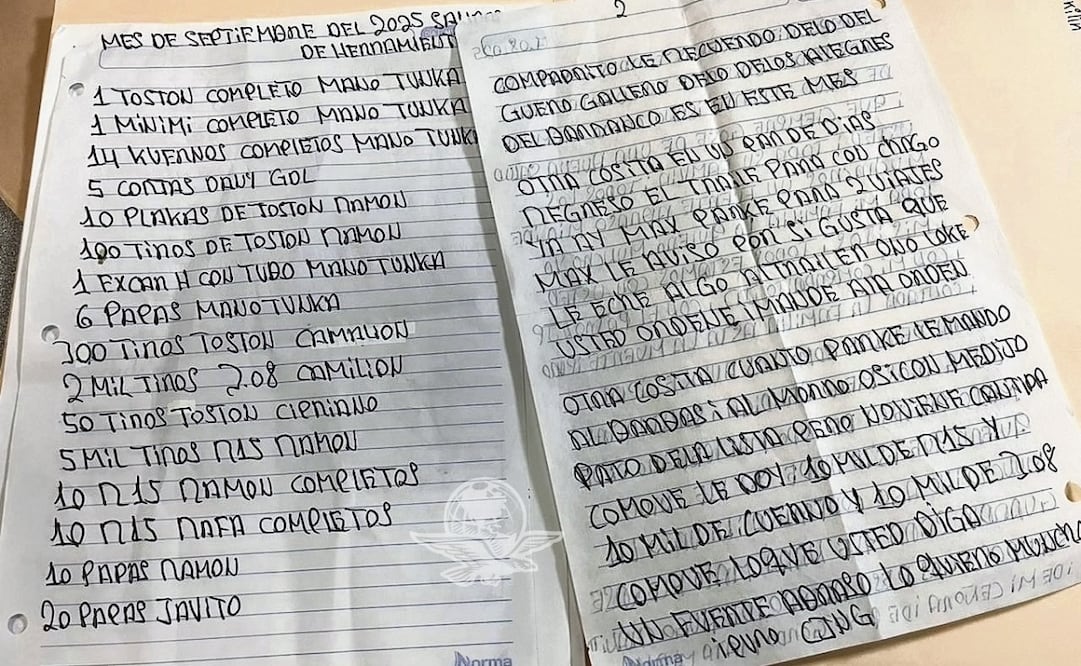 MES DE SEPTIEMBRE DEL 2025
DE HERRAMIENT
1 TOSTON COMPLETO MANO TURKA
1 MINIMI COMPLETO MANO TURKA
14 KUERNOS COMPLETOS MANO TURK
5 CORTAS DAVY GOL
10 PLAKAS DE TOSTON RAMON
100 TIROS DE TOSTON RAMON
1 EXCAR H CON TUBO MANO TURKA
6 PAPAS MANO TURKA
300 TIROS TOSTON CAMALION
2 MIL TIROS 7.08 CAMILION
50 TIROS TOSTON CIPRIANO
5 MIL TIROS R15 RAMON
10 R15 RAMON COMPLETOS
10 R15 RAFA COMPLETOS
10 PAPAS RAMON
20 PAPAS JAVITO
Norma
2
COMPADRITO LE RECUERDO DELO DEL
GUERO GALLERO DELO DELOS ALEGRES
DEL BARRANCO ES EN ESTE MES
OTRA COSITA EN UN PAR DE DIAS
REGRESO EL TRAILE PARA CON CHAGO
YA AY MAX PARKE PARA 2 VIAJES
MAX LE AVISO POR SI GUSTA QUE
LE ECHE ALGO AL TRAILER OLO TOKE
USTED ORDENE I MANDE ALA ORDEN
OTRA COSITA CUANTO PARKE LE MANDO
AL BARBAS I AL MORRO OSICON MEDIJO
PATO DELA LISTA PERO NO VIENE CANTIDA
COMOVE LE DOY 10 MIL DE R15 Y
10 MIL DE CUERNO Y 10 MIL DE 7.08
COMOVE LOQUE USTED DIGA
UN FUERTE ABRASO LO QUIERO MUCHO
IERNO CJNG
Norma